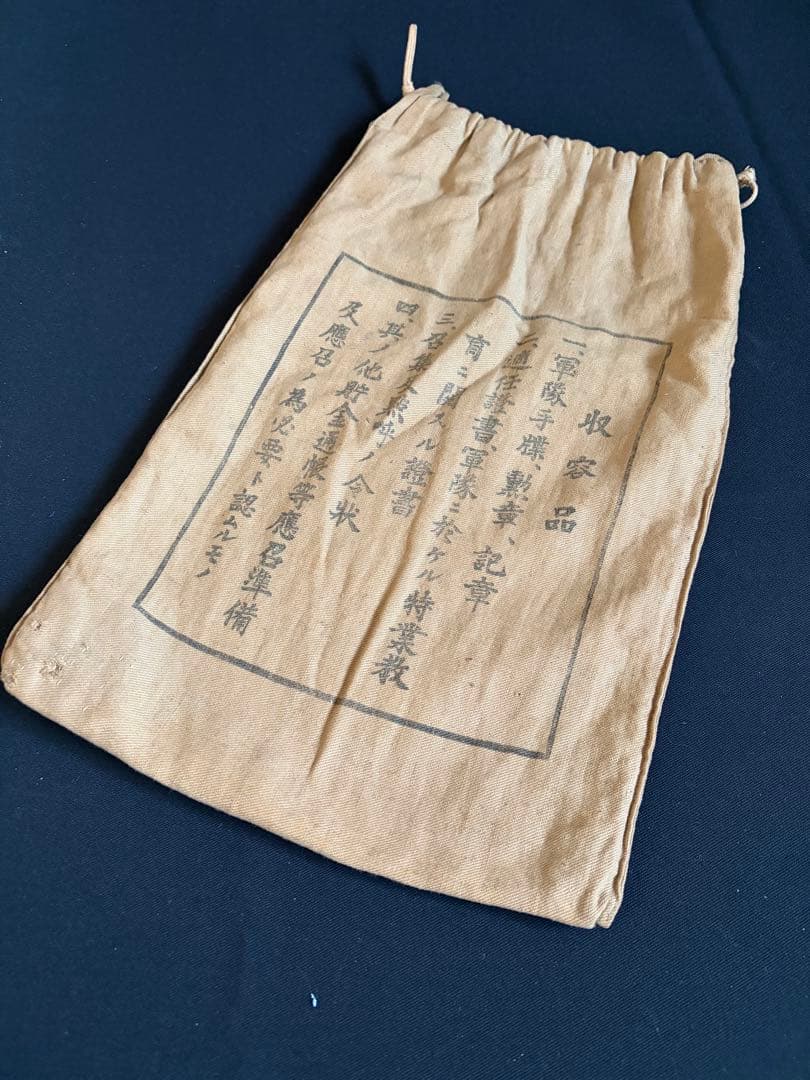 収容品
一、軍隊手牒、勲章、記章
二、適任證書、軍隊ニ於ケル特業教
育ニ関スル證書
三、召集及点呼ノ令状
四、其ノ他貯金通帳等應召準備
及應召ノ為必要ト認ムルモノ